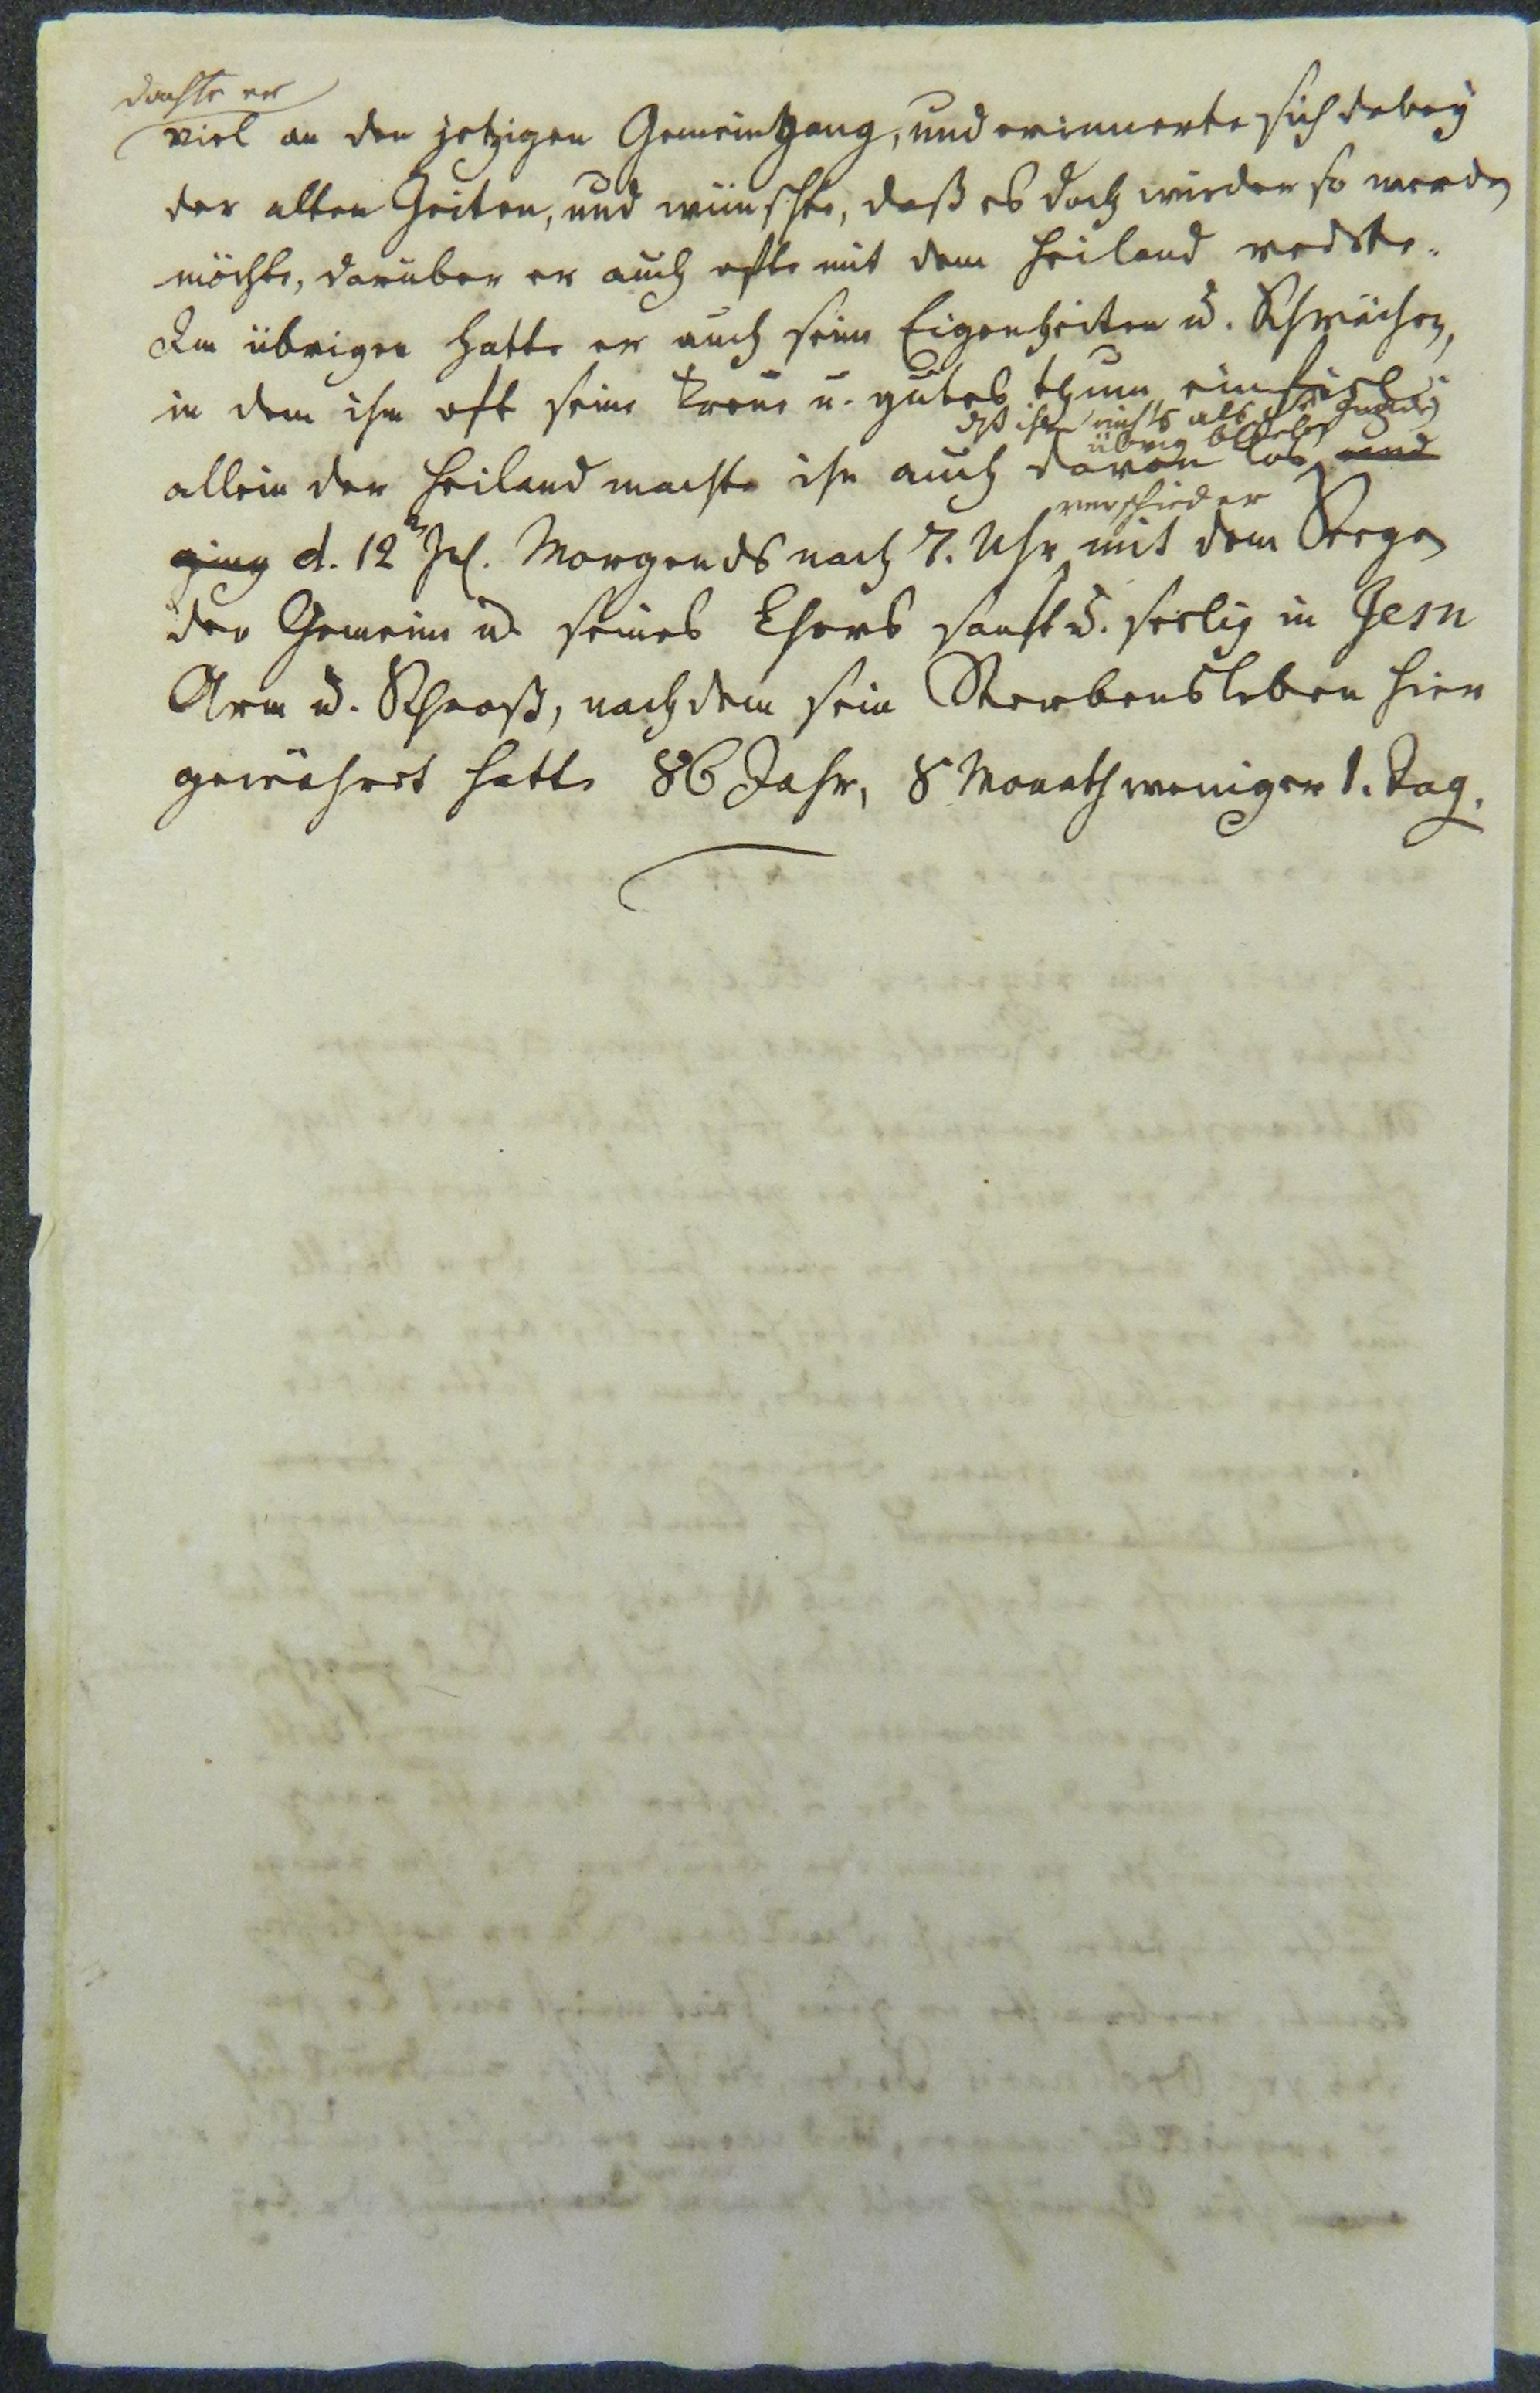 dachte er
viel an den jetzigen Gemeingang, und erinnerte sich dabey
der alten Zeiten, und wünschte, daß es doch wieder so werden
möchte, darüber er auch ofte mit dem Heiland redete.
Im übrigen hatte er auch seine Eigenheiten u. Schwächen,
in dem ihm oft seine Treue u. gutes thun einfiel,
dß ihm nichts als Gnade
übrig bliebe
allein der Heiland machte ihn auch davon los, und
verschieder
ging d. 12n Jul. Morgends nach 7. Uhr mit dem Seegen
der Gemeine u. seines Chores sanft u. seelig in Jesu
Arm u. Schooß, nachdem sein Sterbensleben hier
gewähret hatte 86 Jahr, 8 Monath weniger 1. Tag.